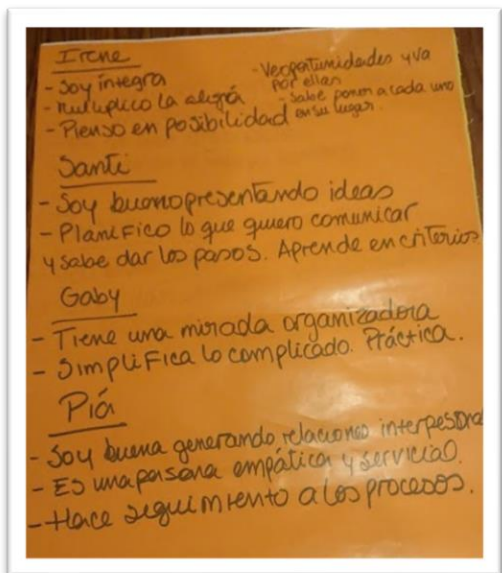 Irene
- Soy íntegra
- Multiplico la alegría
- Pienso en posibilidad
- Ve oportunidades y va
por ellas
- Sabe poner a cada uno
en su lugar.
Santi
- Soy bueno presentando ideas
- Planifico lo que quiero comunicar
y sabe dar los pasos. Aprende en criterios
Gaby
- Tiene una mirada organizadora
- Simplifica lo complicado. Práctica.
Pía
- Soy buena generando relaciones interpersona
- Es una persona empática y servicial.
- Hace seguimiento a los procesos.